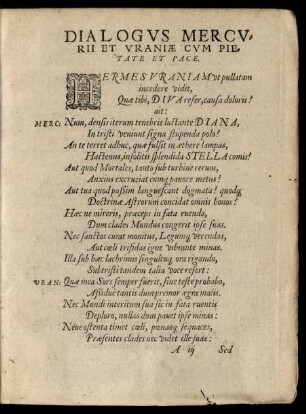 DIALOGVS MERCV-
RII ET VRANIÆ CVM PIE-
TATE ET PACE.
HERMES VRANIAM vt pullatam
incedere vidit,
Quæ tibi, DIVA refer, causa doloris?
ait:
MERC: Num, densis iterum tenebris luctante DIANA,
In tristi veniunt signa stupenda polo?
An te terret adhuc, quæ fulsit in æthere lampas,
Hactenus insolitis splendida STELLA comis?
Aut quod Mortales, tanto sub turbine rerum,
Anxius excruciat cum pauore metus?
Aut tua quod passim languescant dogmata? quodq́;
Doctrinæ Astrorum concidat omnis honos?
Hæc ne mireris, præceps in fata ruendo,
Dum clades Mundus congerit ipse suas.
Nec sanctos curat monitus, Legumq́; verendas,
Aut cœli trifidas igne vibrante minas.
Illa sub hæc lachrimis singultuq́; ora rigando,
Subtristi tandem talia voce refert:
VRAN: Quæ mea Sors semper fuerit, sine teste probabo,
Assiduè tantis dum premor ægra malis.
Nec Mundi interitum sua sic in fata ruentis
Deploro, nullas dum pauet ipse minas:
Nêue ostenta timet cœli, pœnasq́; sequaces,
Præsentes clades nec videt ille suas:
A iij Sed